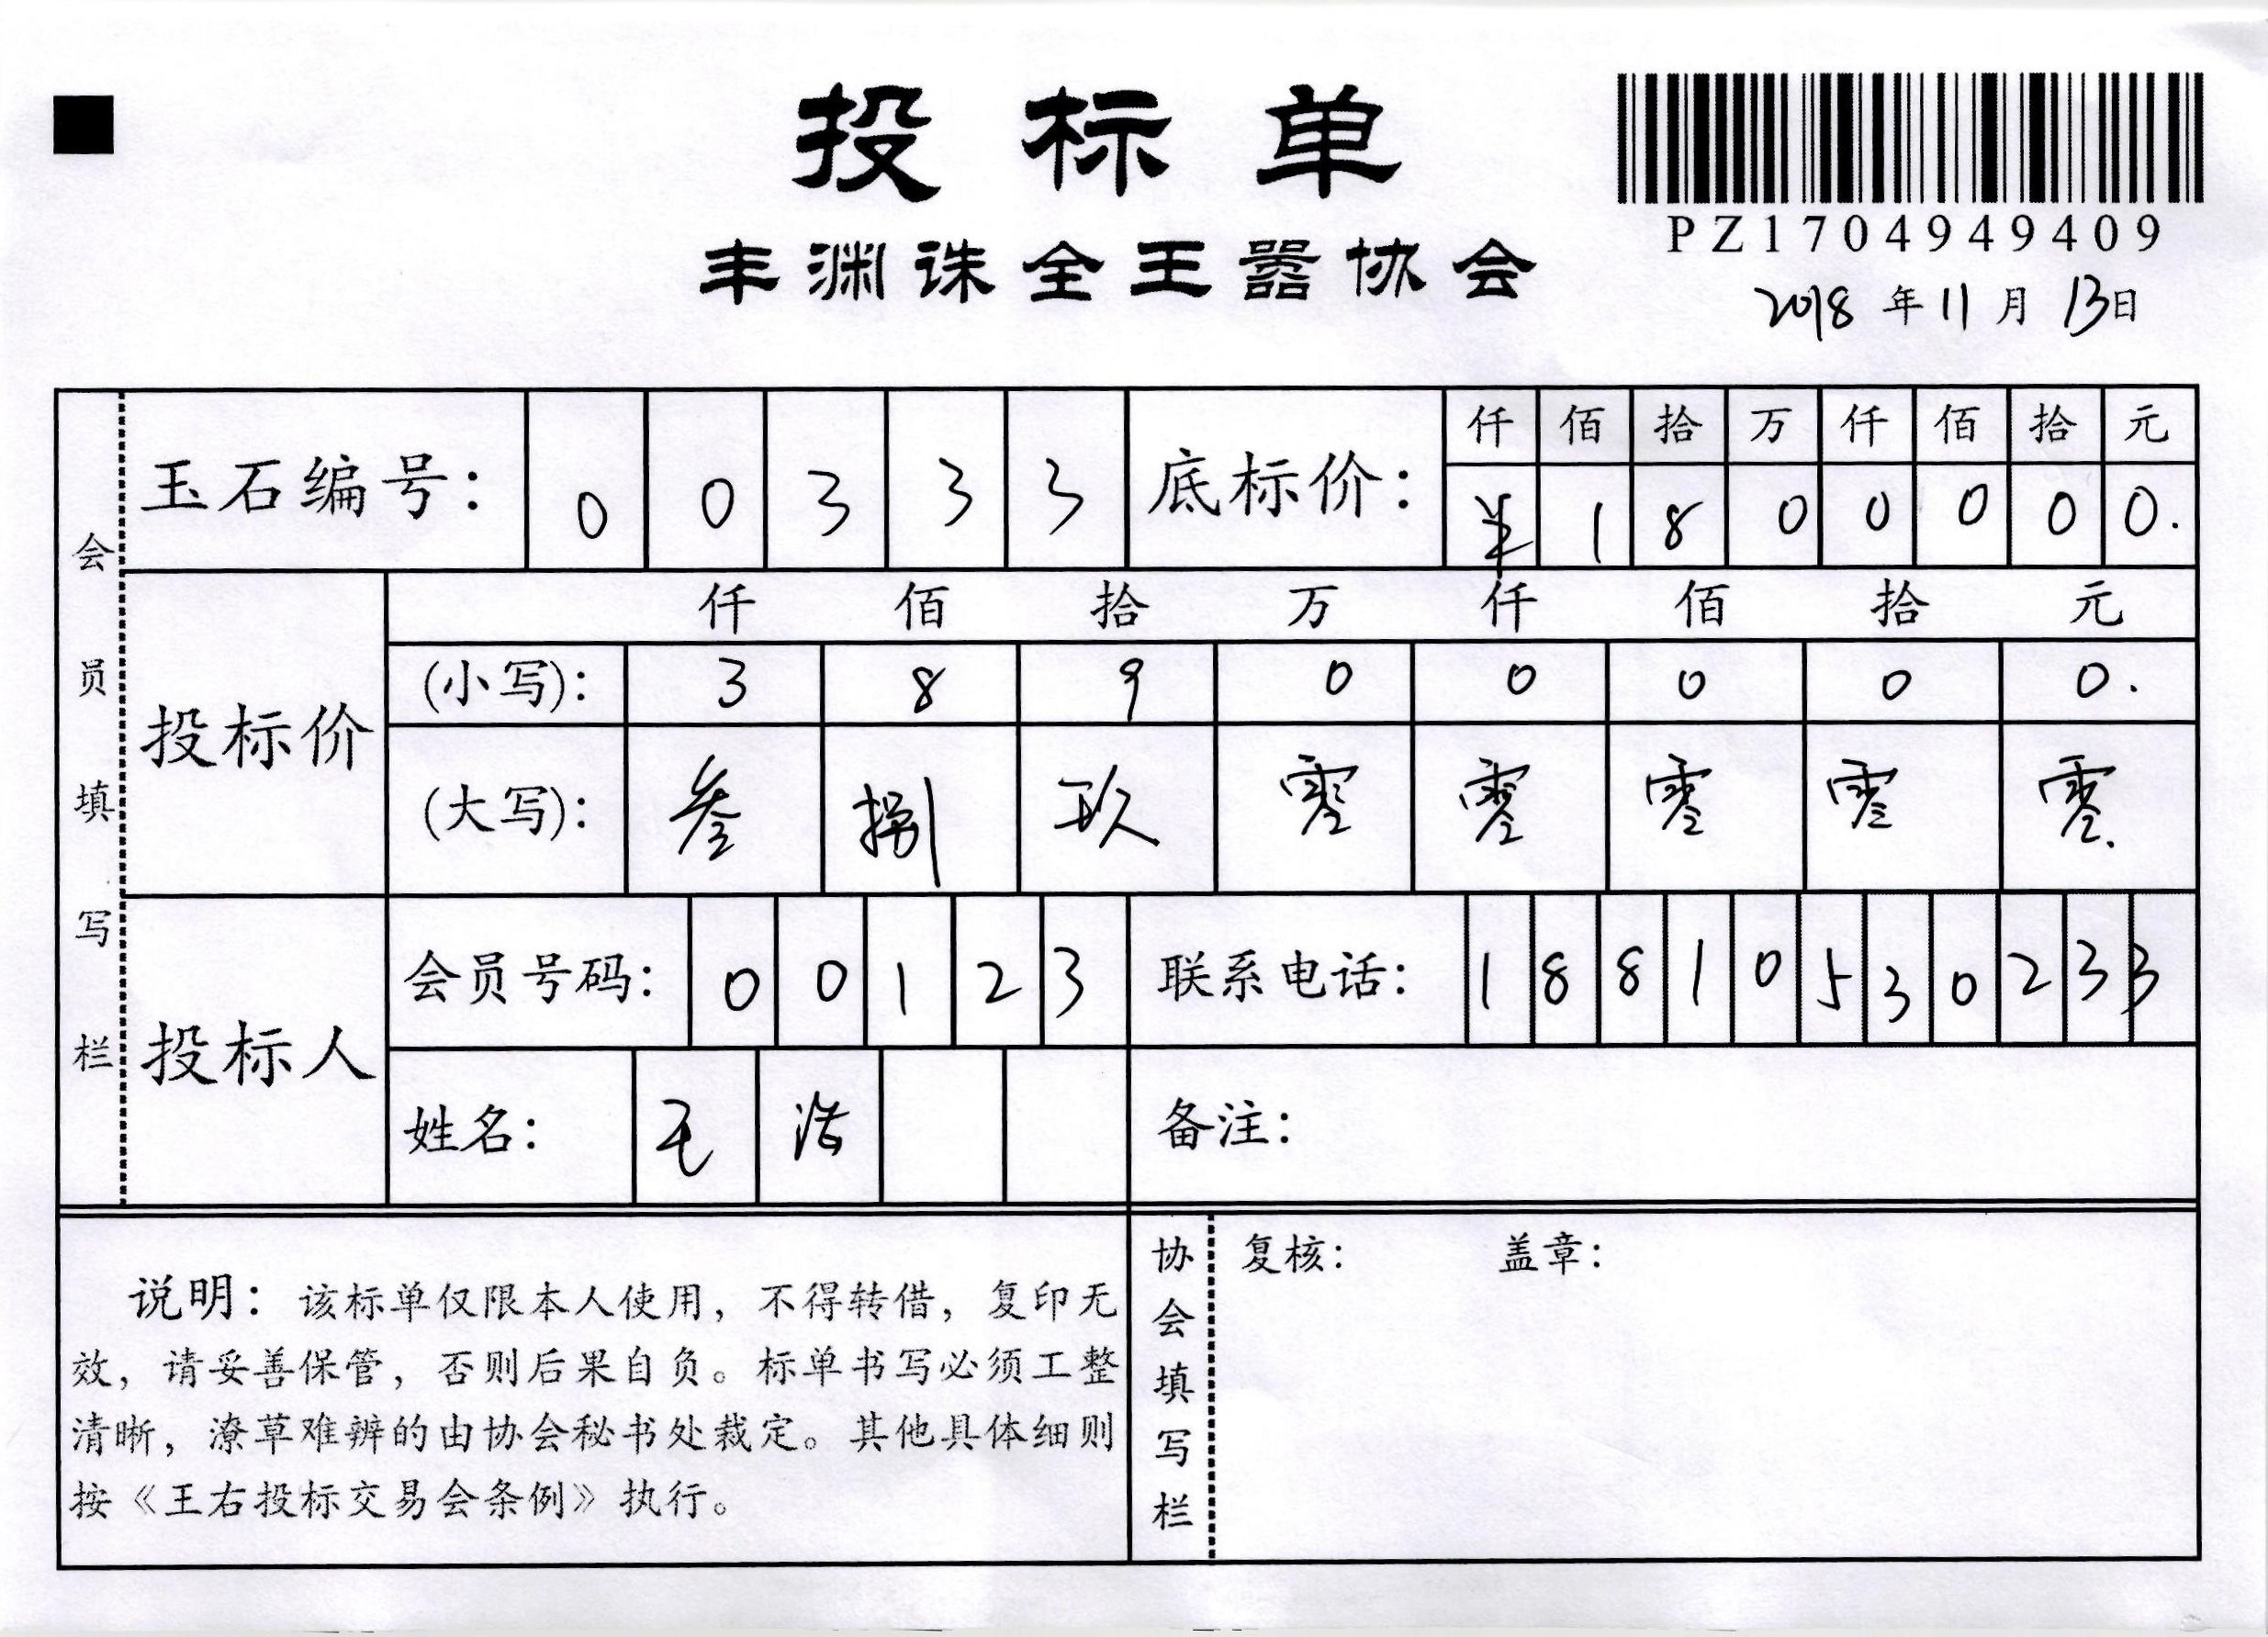 投标单
PZ1704949409
丰渊诛全王嚣协会
2018年11月13日
会员填写栏
玉石编号: 0 0 3 3 3
底标价: 仟 佰 拾 万 仟 佰 拾 元
¥ 1 8 0 0 0 0 0.
投标价
仟 佰 拾 万 仟 佰 拾 元
(小写): 3 8 9 0 0 0 0 0.
(大写): 叁 捌 玖 零 零 零 零 零.
投标人
会员号码: 0 0 1 2 3
联系电话: 1 8 8 1 0 5 3 0 2 3 3
姓名: 毛 浩
备注:
说明: 该标单仅限本人使用, 不得转借, 复印无
效, 请妥善保管, 否则后果自负。标单书写必须工整
清晰, 潦草难辨的由协会秘书处裁定。其他具体细则
按《王右投标交易会条例》执行。
协会填写栏
复核: 盖章: